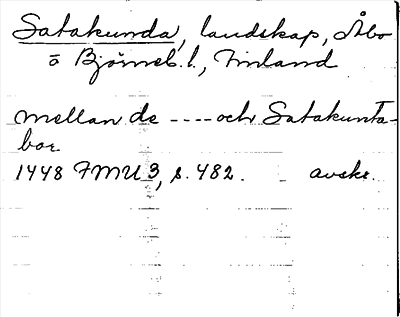 Satakunda, landskap, Åbo
o Björneb. l., Finland
mellan de ---- och Satakunta-
bor
1448 FMU 3, s. 482. avskr.